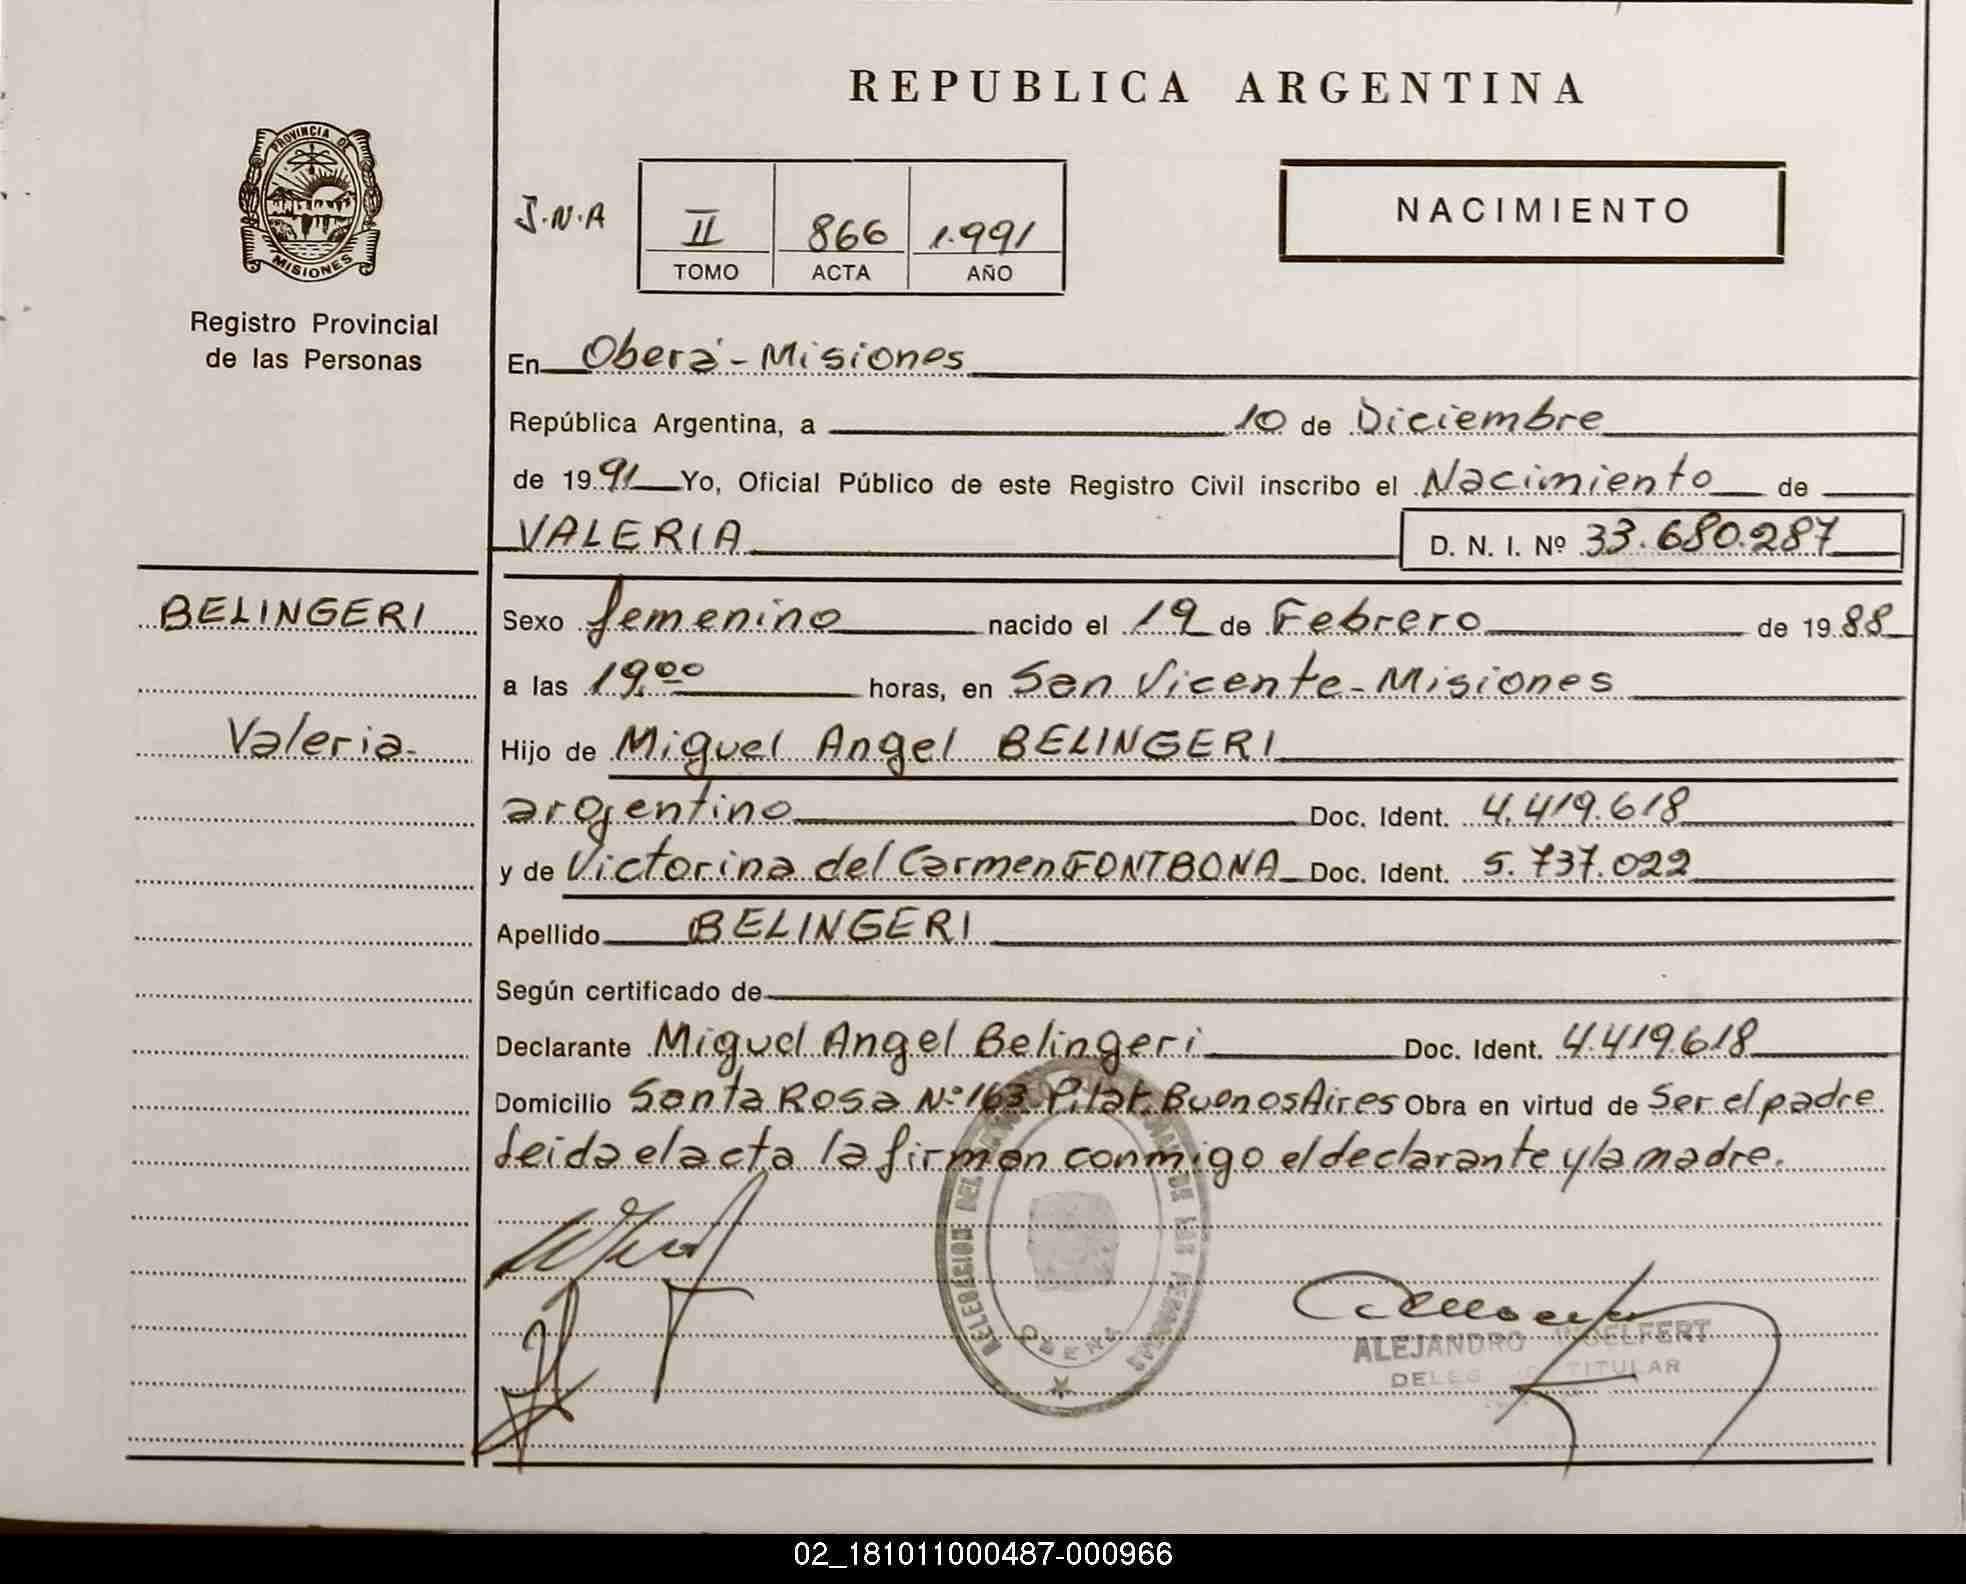 REPUBLICA ARGENTINA
PROVINCIA DE
MISIONES
Registro Provincial
de las Personas
J.N.A
II 866 1.991
TOMO ACTA AÑO
NACIMIENTO
En Oberá - Misiones
República Argentina, a 10 de Diciembre
de 1991 Yo, Oficial Público de este Registro Civil inscribo el Nacimiento de
VALERIA D. N. I. Nº 33.680.287
BELINGERI
Valeria
Sexo femenino nacido el 19 de Febrero de 1988
a las 19,00 horas, en San Vicente - Misiones
Hijo de Miguel Angel BELINGERI
argentino Doc. Ident. 4.419.618
y de Victorina del Carmen FONTBONA Doc. Ident. 5.737.022
Apellido BELINGERI
Según certificado de
Declarante Miguel Angel Belingeri Doc. Ident. 4.419.618
Domicilio Santa Rosa Nº 163 Pilar. Buenos Aires Obra en virtud de Ser el padre
leida el acta la firman conmigo el declarante y la madre.
DELEGACION DEL DE LAS PERSONAS
ALEJANDRO
TITULAR
02_181011000487-000966